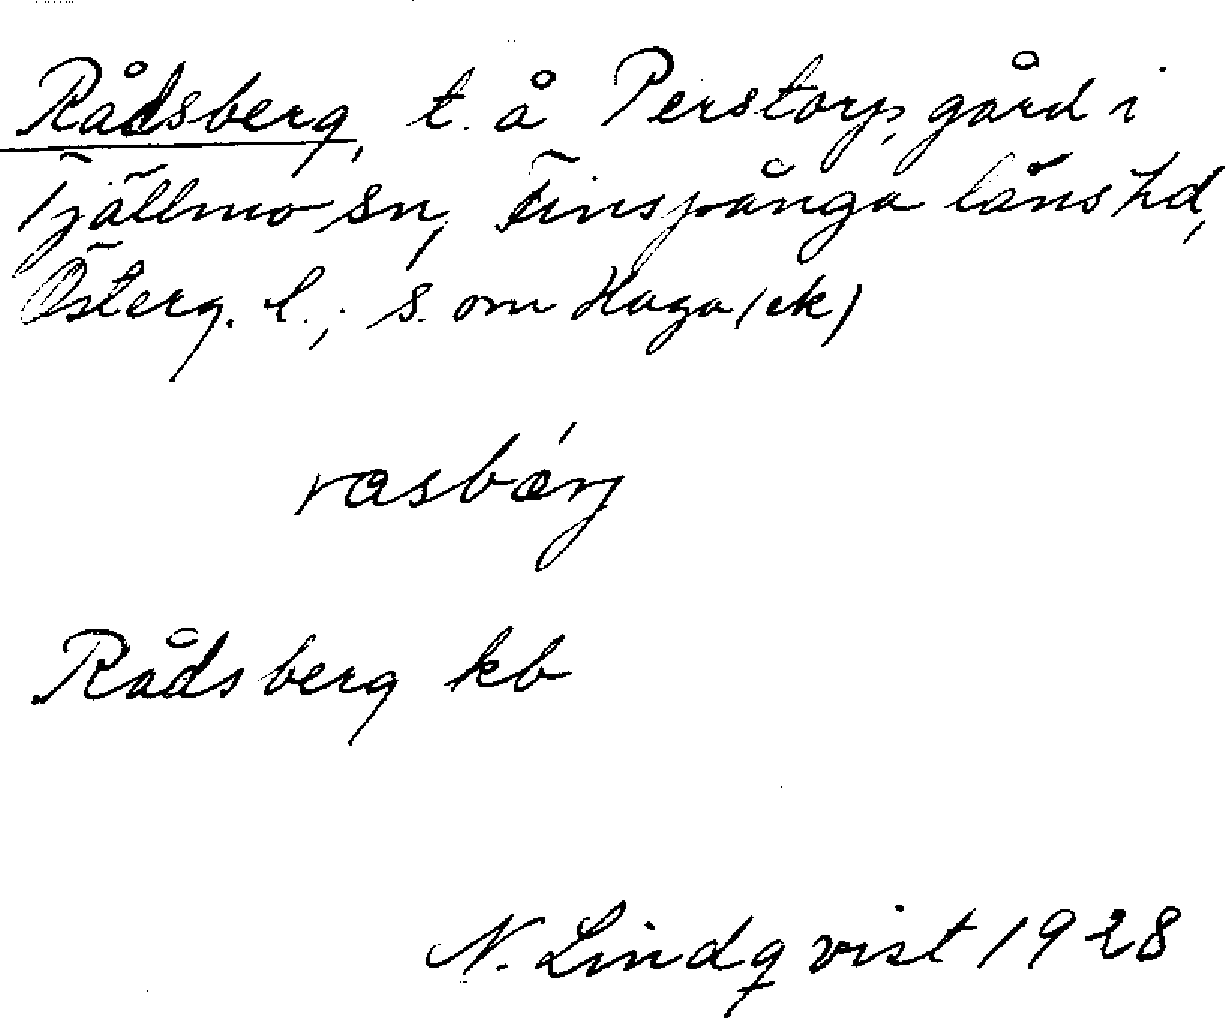 Rådsberg, t. å Perstorp, gård i
Tjällmo sn, Finspånga läns hd,
Österg. l.; s. om Haga (ek)
rasbærj
Rådsberg kb
N. Lindqvist 1928